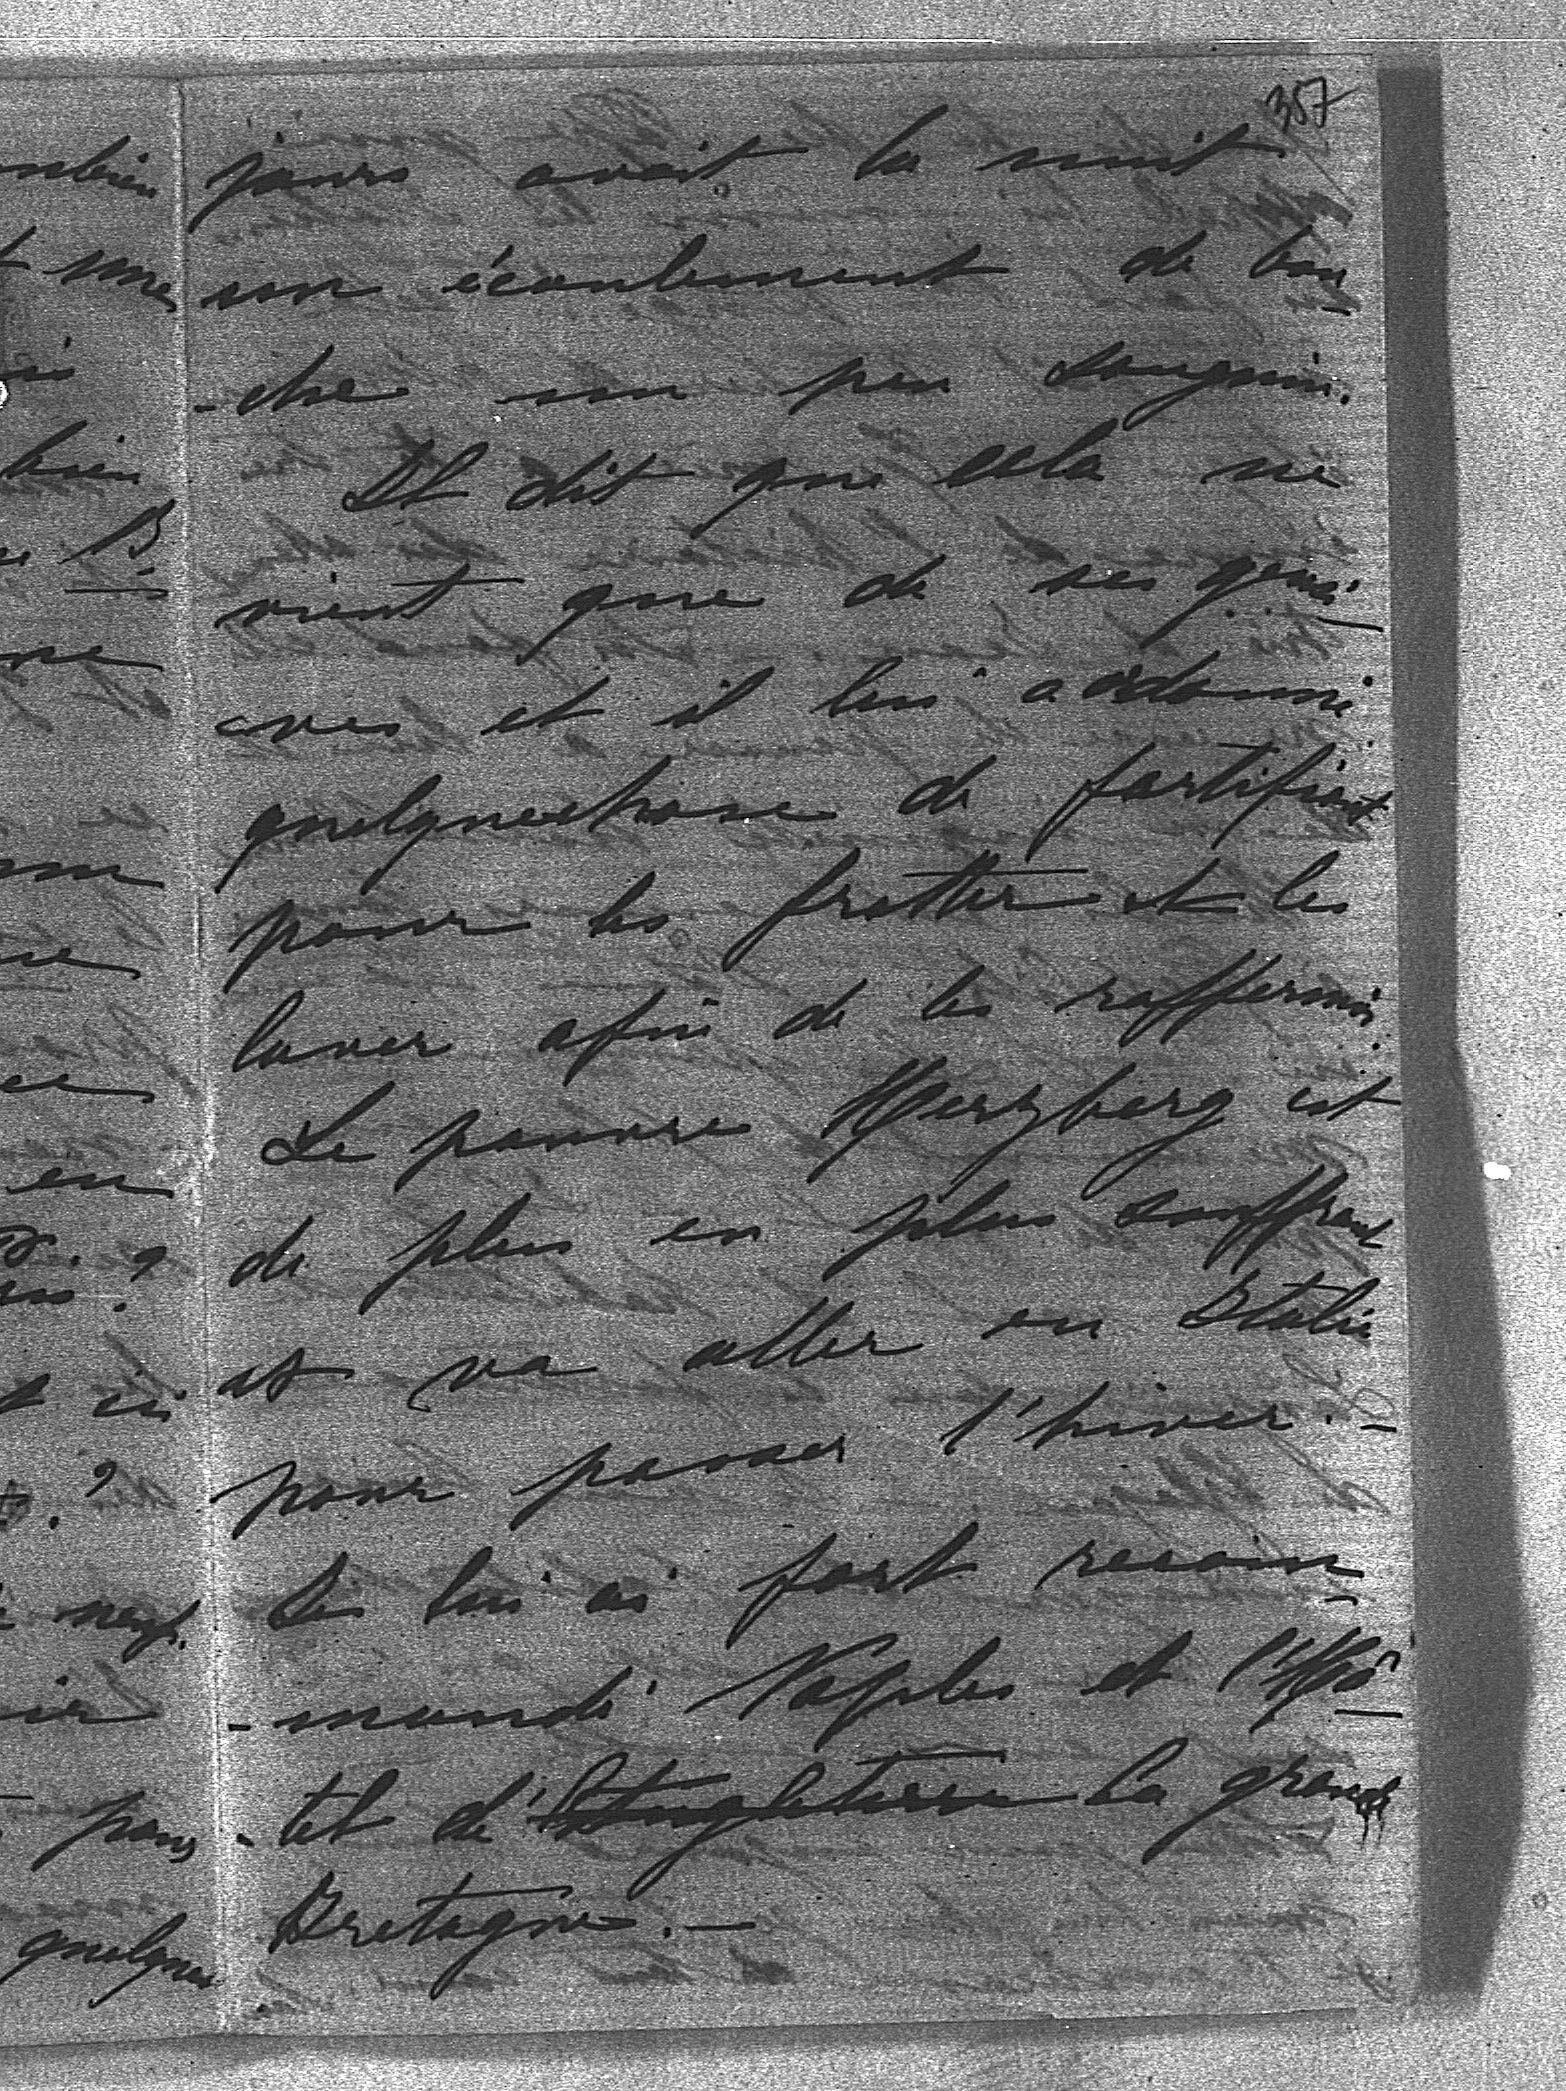 357
jours avait la nuit
un écoulement de bou
-che un peu sanguin.
Il dit que cela ne
vient que de ses genci-
cves et il lui a ordonné
quelquechose de fortifiant
pour les frotter et les
laver afin de les raffermir.
Le pauvre Herzberg est
de plus en plus souffrant
et va aller en Italie
pour passer l'hiver. -
Je lui ai fort recom-
-mandé Naples et l'Hô-
-tel de l'Angleterre la grande
Bretagne. -
mbien
bien
B.
en
?
?
pas
quelques